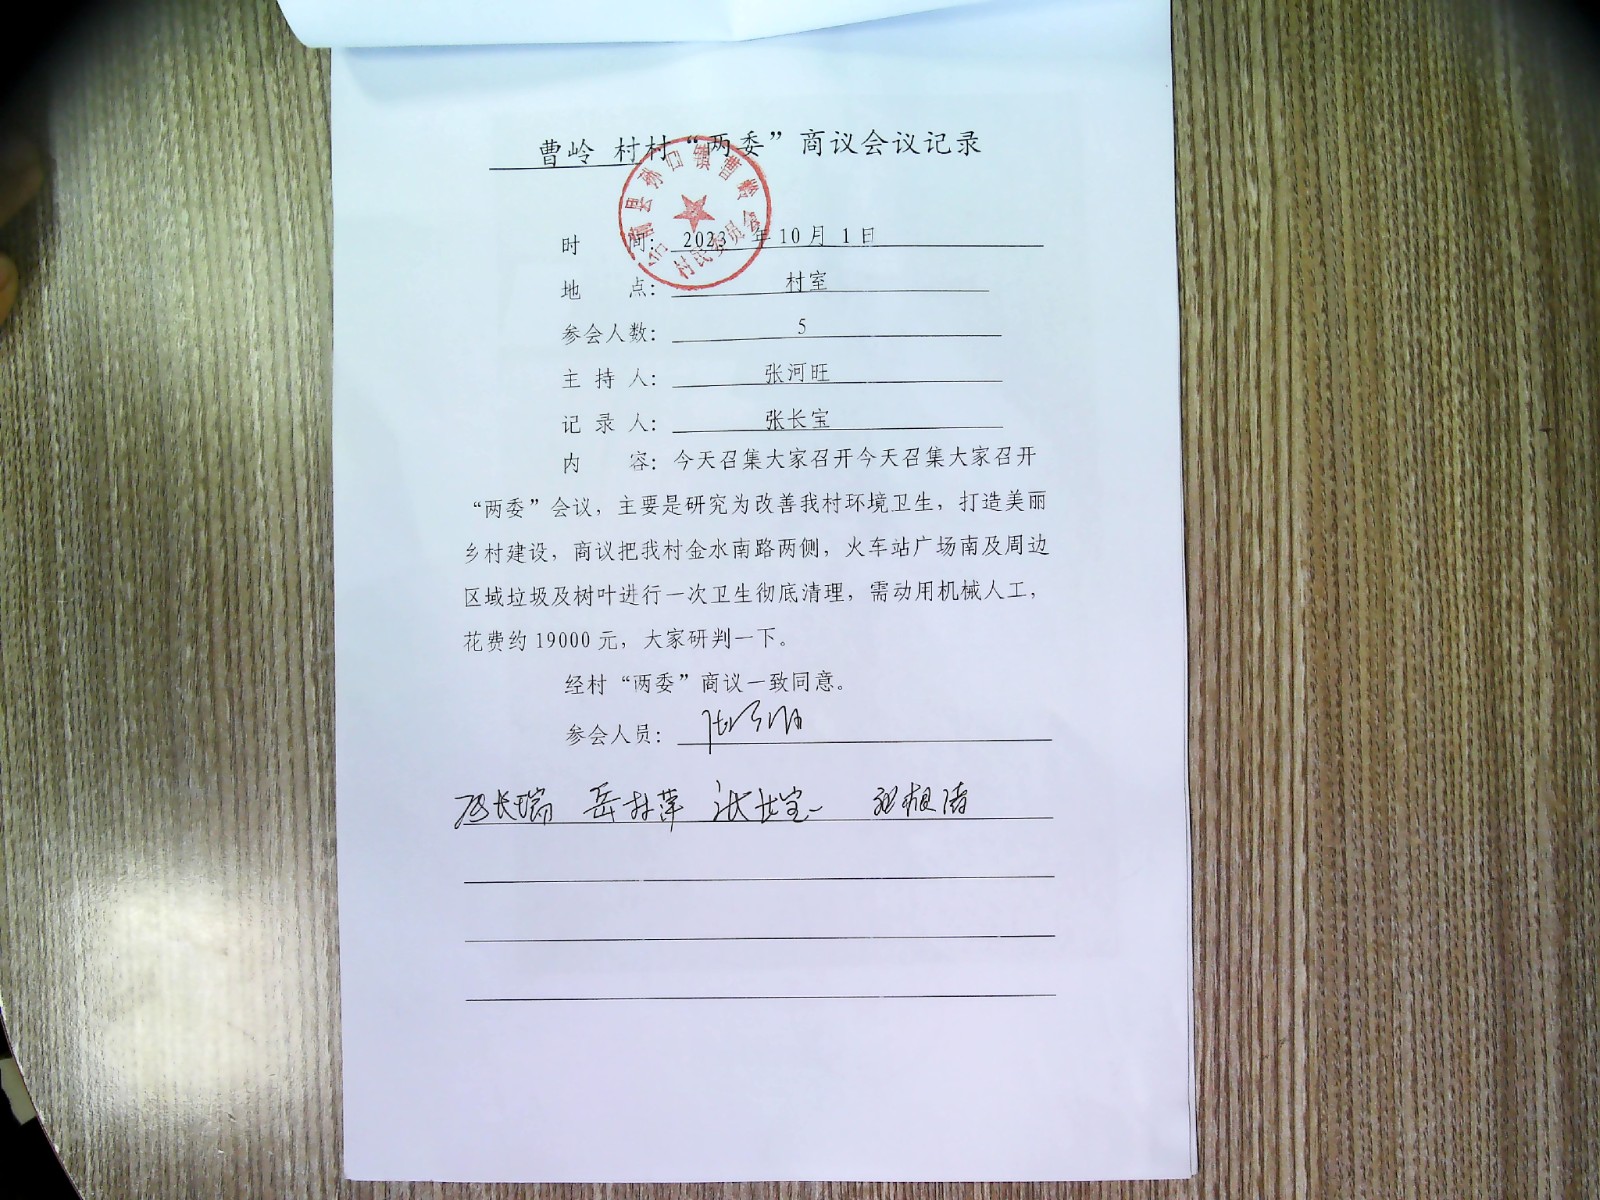 曹岭 村村“两委”商议会议记录
时 间：2023 年 10 月 1 日
地 点： 村室
参会人数： 5
主 持 人： 张河旺
记 录 人： 张长宝
内 容：今天召集大家召开今天召集大家召开
“两委”会议，主要是研究为改善我村环境卫生，打造美丽
乡村建设，商议把我村金水南路两侧，火车站广场南及周边
区域垃圾及树叶进行一次卫生彻底清理，需动用机械人工，
花费约 19000 元，大家研判一下。
经村“两委”商议一致同意。
参会人员：
张长宝
县孙口镇曹岭
村民委员会